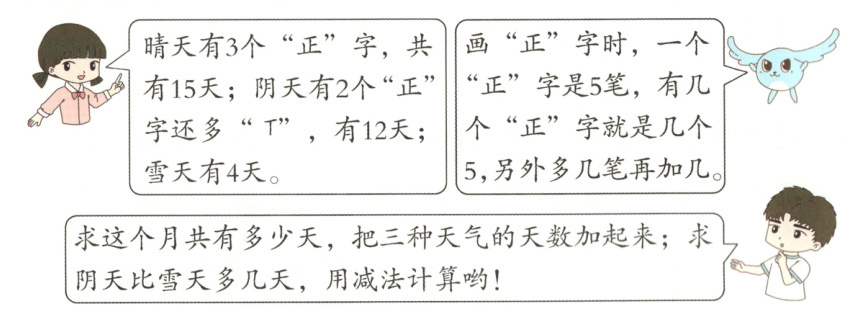 晴天有3个“正”字，共
有15天；阴天有2个“正”
字还多“㇀丅”，有12天；
雪天有4天。
画“正”字时，一个
“正”字是5笔，有几
个“正”字就是几个
5，另外多几笔再加几。
求这个月共有多少天，把三种天气的天数加起来；求
阴天比雪天多几天，用减法计算哟！